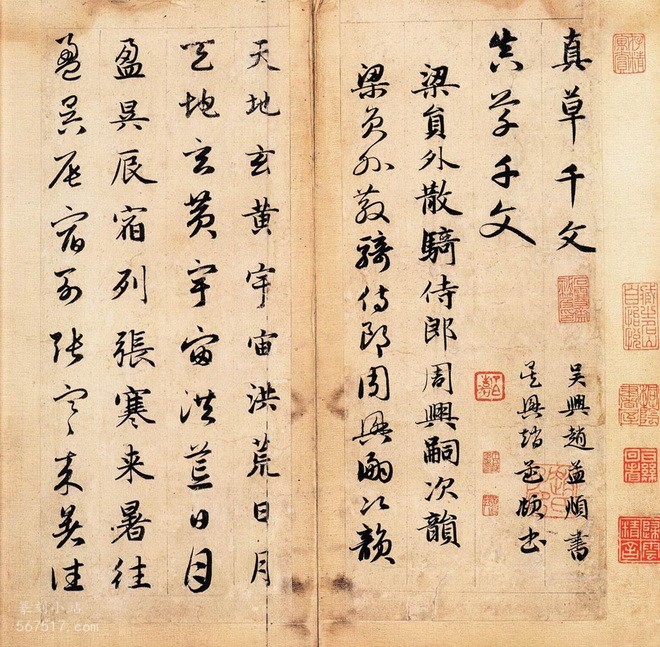 真草千文
吳興趙孟頫書
真草千文
吳興趙孟頫書
梁員外散騎侍郎周興嗣次韻
梁員外散騎侍郎周興嗣次韻
天地玄黃宇宙洪荒日月
天地玄黃宇宙洪荒日月
盈昃辰宿列張寒来暑往
盈昃辰宿列張寒来暑往
篆刻小站
567517.com